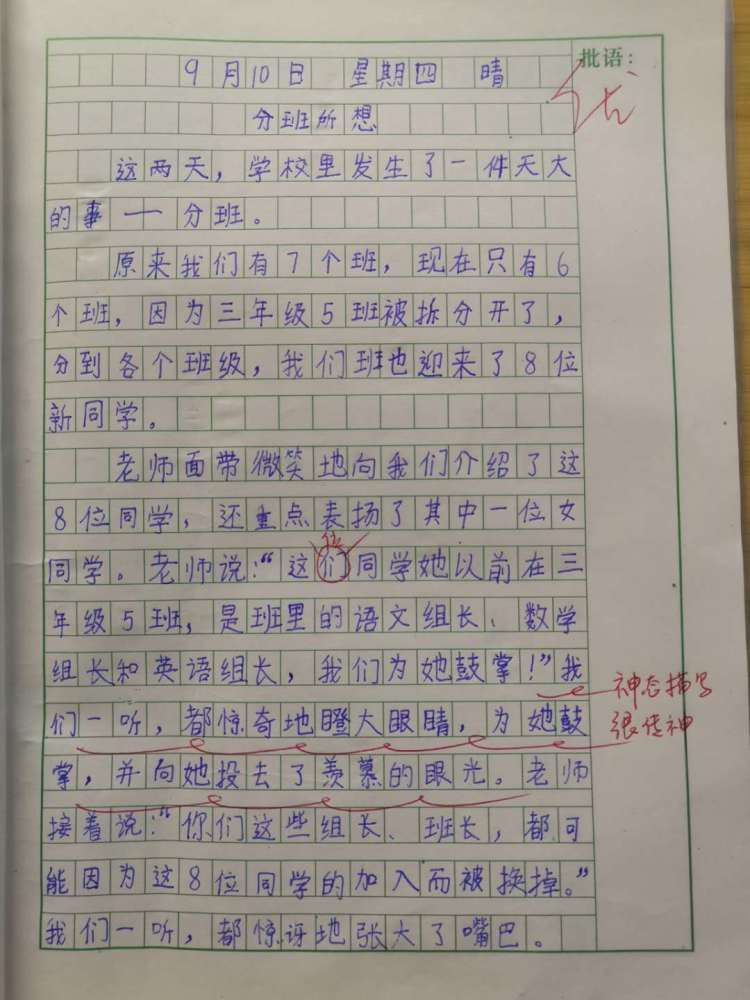 9月10日 星期四 晴
批语:
优
分班所想
这两天，学校里发生了一件天大
的事——分班。
原来我们有7个班，现在只有6
个班，因为三年级5班被拆分开了，
分到各个班级，我们班也迎来了8位
新同学。
老师面带微笑地向我们介绍了这
8位同学，还重点表扬了其中一位女
位
同学。老师说：“这们同学她以前在三
年级5班，是班里的语文组长、数学
组长和英语组长，我们为她鼓掌！”我
神态描写
们一听，都惊奇地瞪大眼睛，为她鼓
很传神
掌，并向她投去了羡慕的眼光。老师
接着说：“你们这些组长、班长，都可
能因为这8位同学的加入而被换掉。”
我们一听，都惊讶地张大了嘴巴。